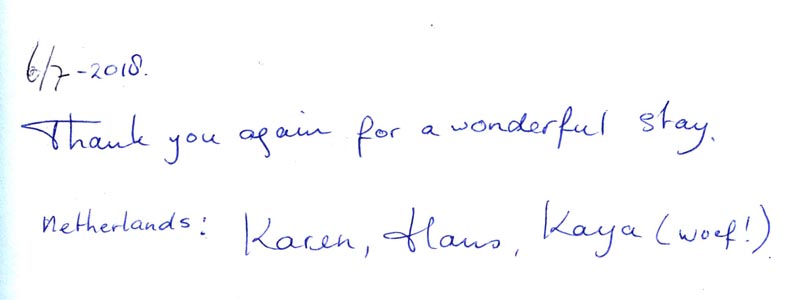 6/7-2018.
Thank you again for a wonderful stay.
Netherlands: Karen, Hans, Kaya (woef!)